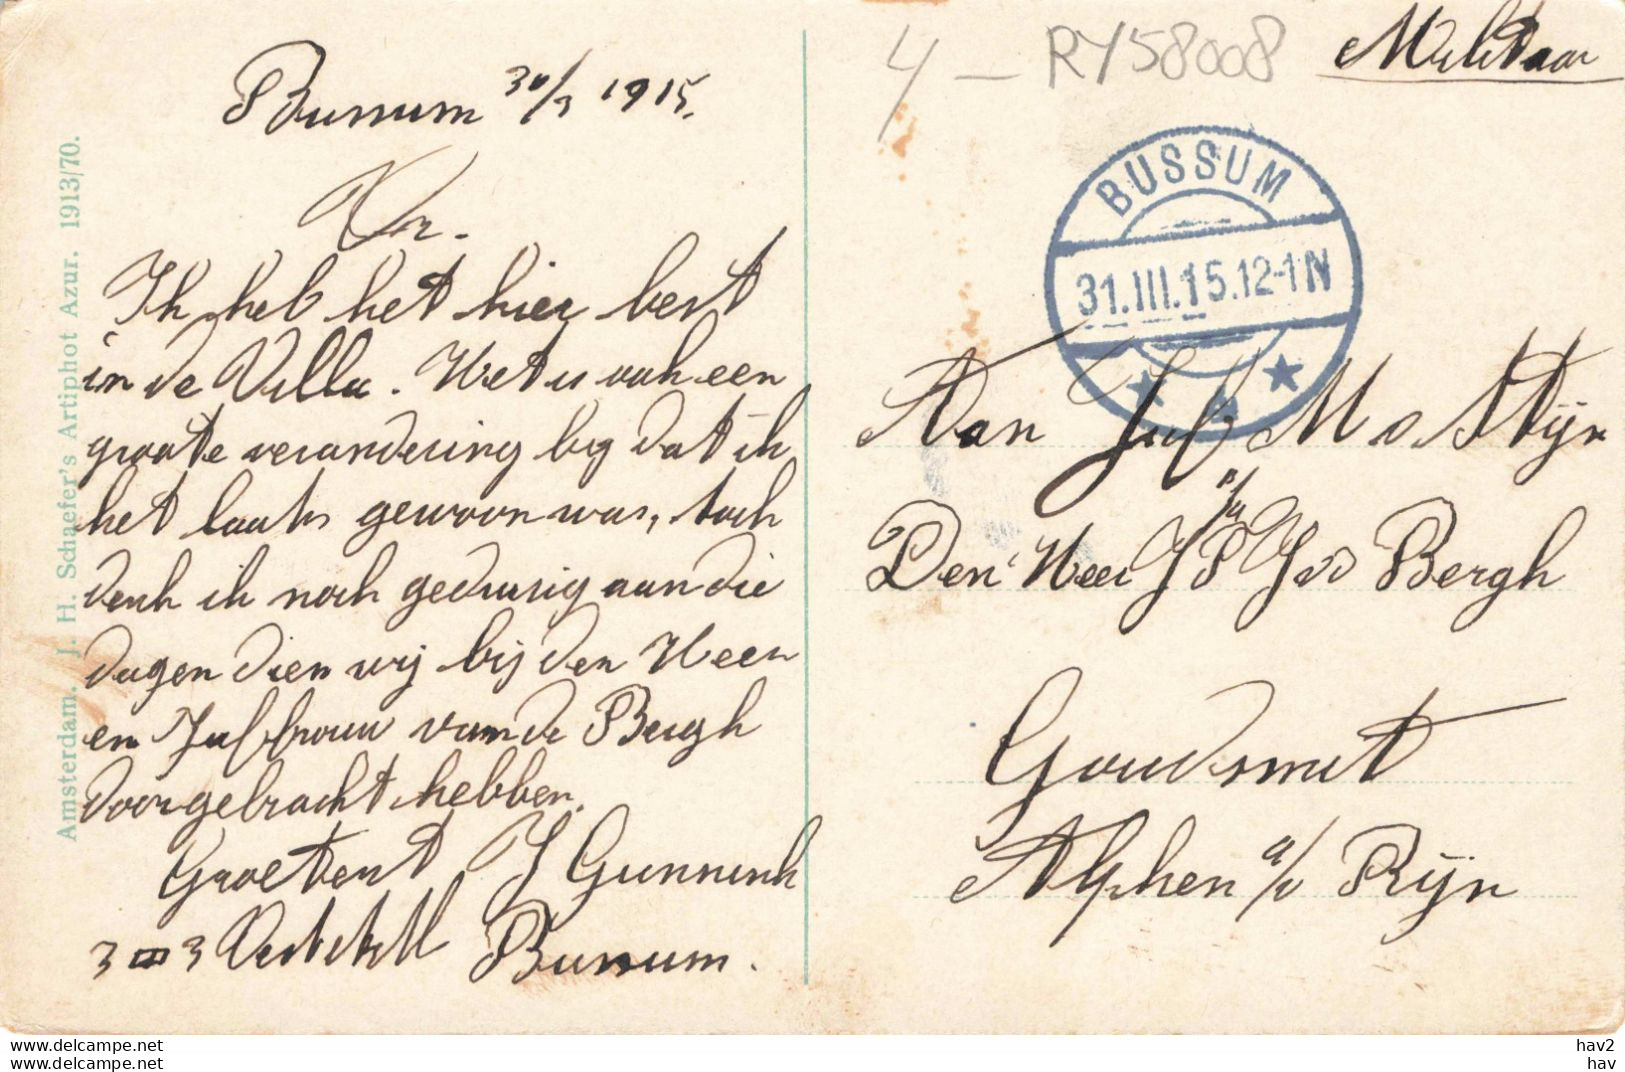 Bussum 30/3 1915.
Vr.
Ik heb het hier best
in de Villa. Het is ook een
groote verandering bij dat ik
het laats gewoon was, toch
denk ik noch gedurig aan die
dagen dien wij bij den Heer
en Jufbrouw van de Bergh
doorgebracht hebben.
Groetent J Gunnink
Bussum.
Amsterdam. J. H. Schaefer's Artiphot Azur. 1913/70.
4 - RY58008
Militaar
BUSSUM
31.III.15.12-1N
Aan Juf M v Stijn
p/a
Den Heer J P J v d Bergh
Goudsmit
Alphen a/d Rijn
www.delcampe.net
www.delcampe.net
hav2
hav